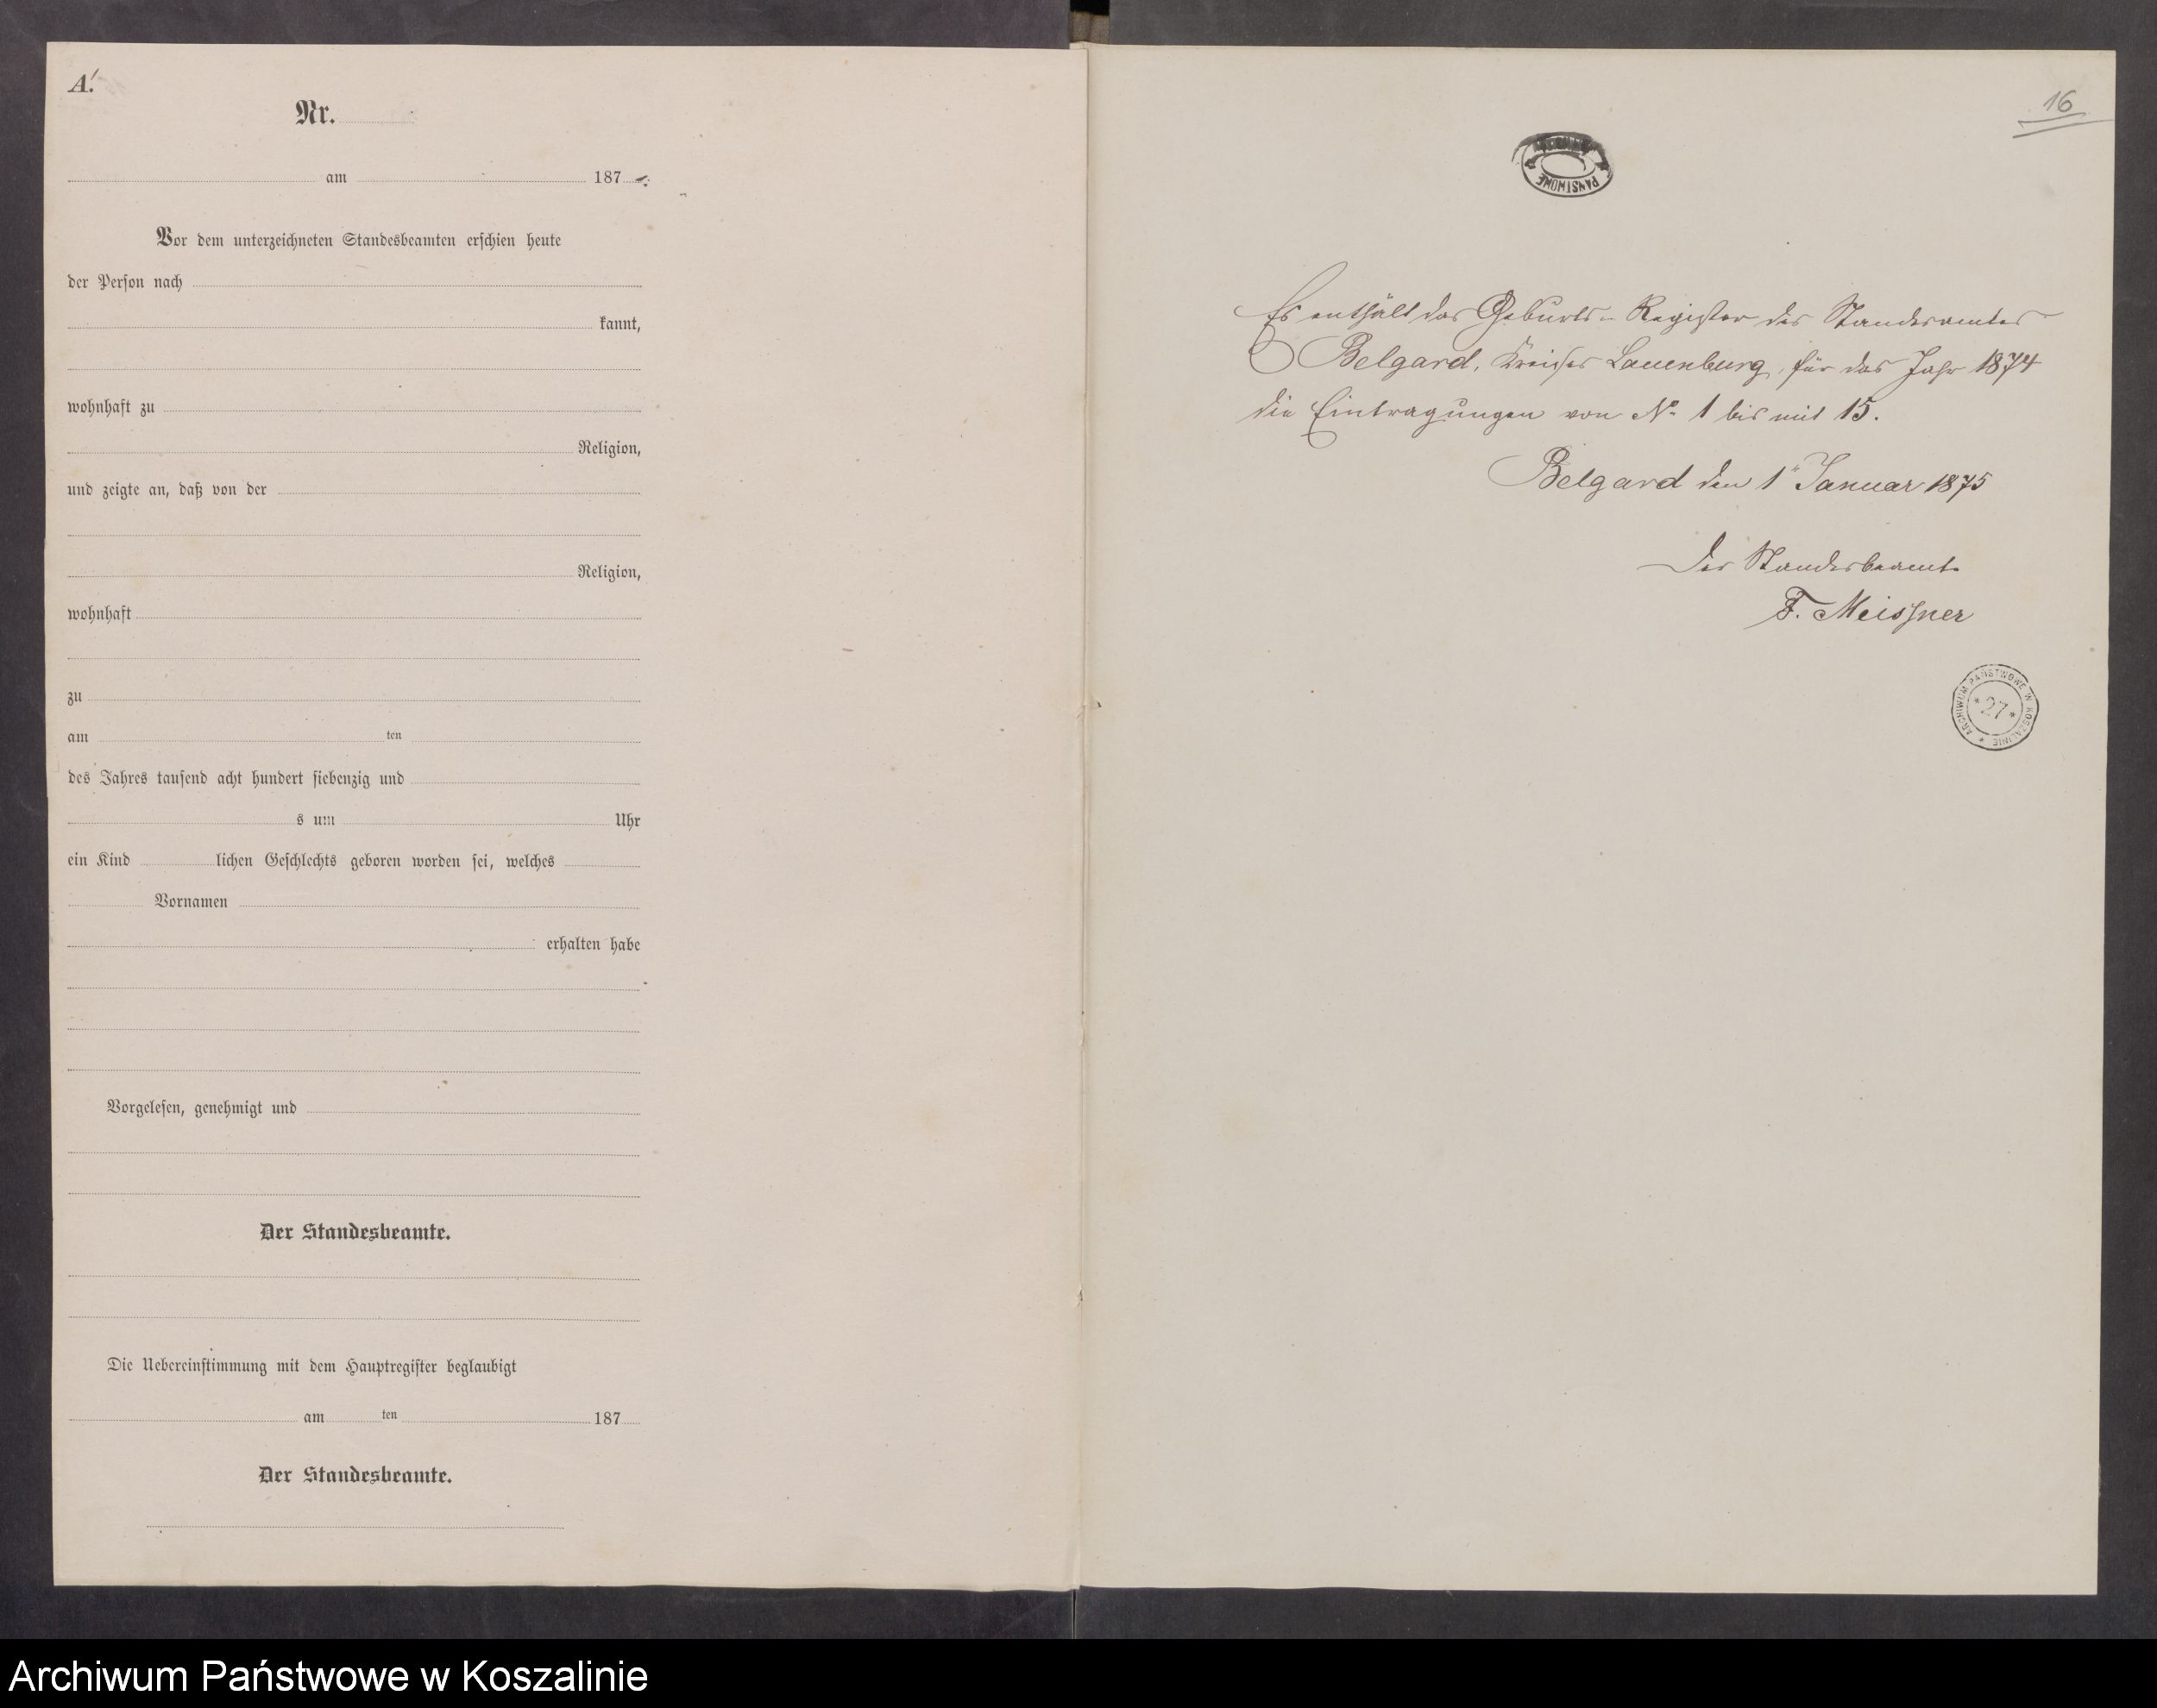 A!
Nr.
am 187
Vor dem unterzeichneten Standesbeamten erschien heute
der Person nach
kannt,
wohnhaft zu
Religion,
und zeigte an, daß von der
Religion,
wohnhaft
zu
am ten
des Jahres tausend acht hundert siebenzig und
s um Uhr
ein Kind lichen Geschlechts geboren worden sei, welches
Vornamen
erhalten habe
Vorgelesen, genehmigt und
Der Standesbeamte.
Die Uebereinstimmung mit dem Hauptregister beglaubigt
am ten 187
Der Standesbeamte.
16
PAŃSTWOWE
Es enthält das Geburts-Register des Standesamtes
Belgard, Kreises Lauenburg, für das Jahr 1874
die Eintragungen von No 1 bis mit 15.
Belgard den 1 Januar 1875
Der Standesbeamte
F. Meissner
ARCHIWUM PAŃSTWOWE W KOSZALINIE
* 27 *
Archiwum Państwowe w Koszalinie